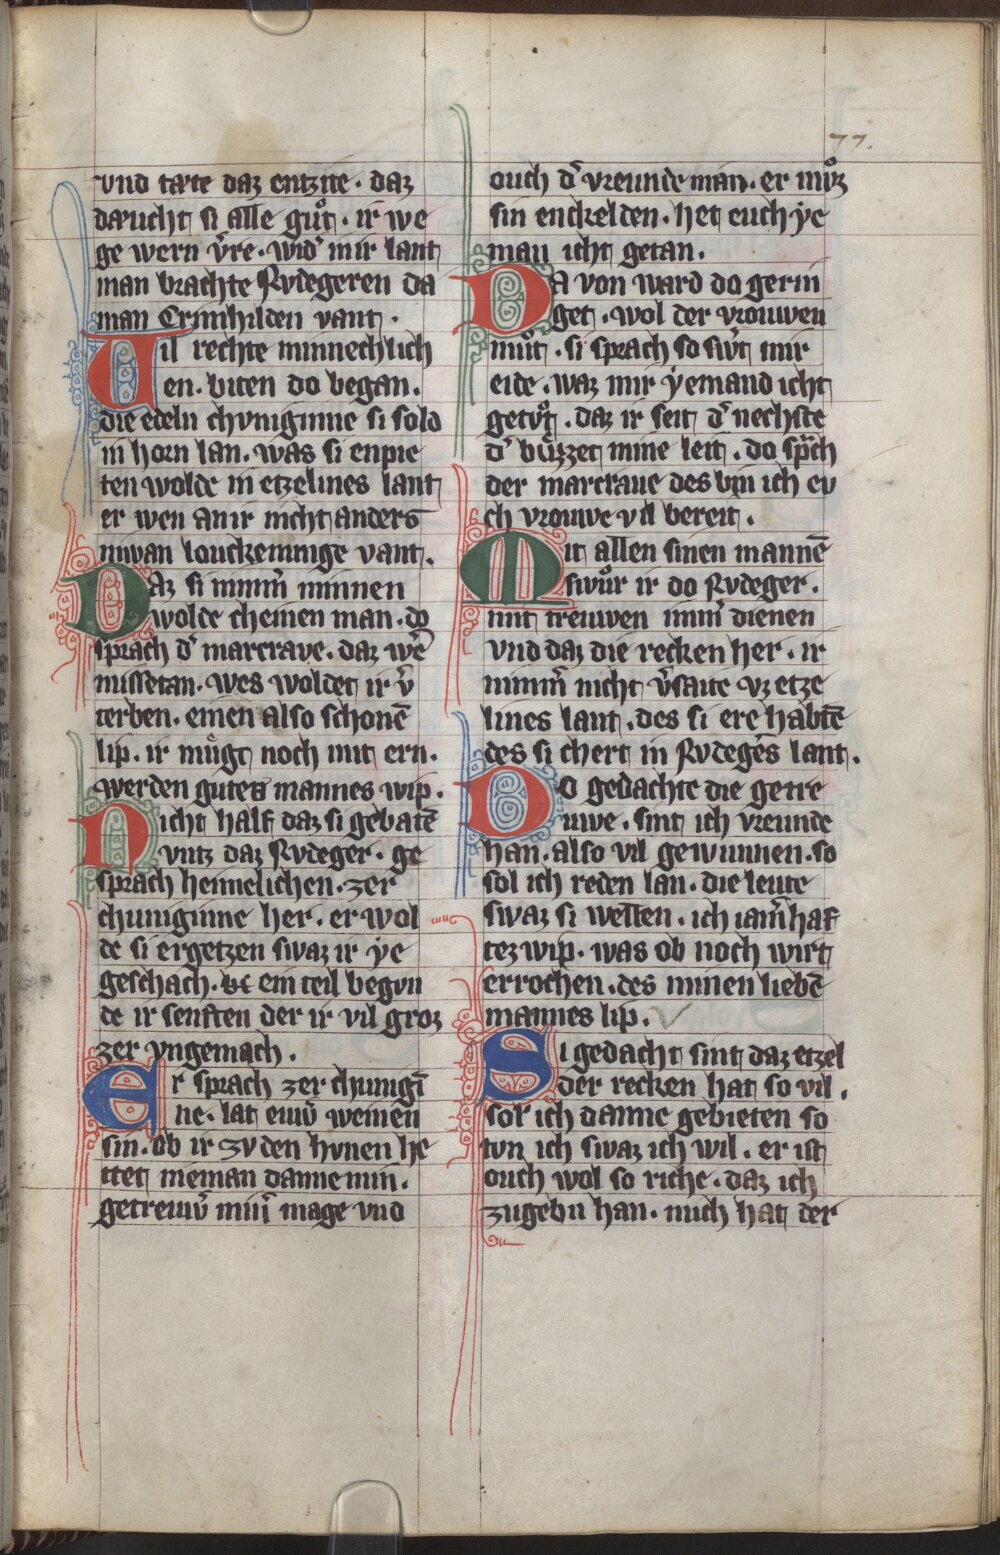 77.
vnd tæte daz entzite . daz
dæucht si alle guͦt . ir we
ge wern vͤre . wid' mir lant
man brachte Rvdegeren da
man Crimhilden vant .
Vil rechte minnechlich
en . biten do began .
die edeln chvniginne si sold
in horn lan . was si enpie
ten wolde in etzelines lant
er wen an ir nicht anders
niwan louckeninge vant .
Daz si nimm̄ minnen
wolde cheinen man . do
sprach d' marcrave . daz wē
missetan . wes woldet ir v̄
terben . einen also schonē
lip . ir muͤgt noch mit ern .
werden gutes mannes wip .
Nicht half daz si gebatē
vntz daz Rvdeger . ge
sprach heimelichen . zer
chuniginne her . er wol
de si ergetzen swaz ir ye
geschach . ein teil begvn
de ir senften der ir vil groz
zer vngemach .
Er sprach zer chunigī
ne . lat ewer weinen
sin . ob ir zv den hvnen he
ttet nieman danne min .
getrewer min̄ mage vnd
ouch d' vreunde man . er muͦz
sin enckelden . het euch ye
man icht getan .
Da von ward do gerin
get . wol der vrouwen
muͦt . si sprach so swͤrt mir
eide . waz mir yemand icht
getvͦt . daz ir seit d' nechste
d' buͤzzet mine leit . do sp̄ch
der marcrave des bin ich ev
ch vrouwe vil bereit .
Mit allen sinen mannē
swuͦr ir do Rvdeger .
mit treuwen imm̄ dienen
vnd daz die recken her . ir
nimm̄ nicht v̄saite vz etze
lines lant . des si ere habtē
des si chert in Rvdegēs lant .
Do gedachte die getre
uwe . sint ich vreunde
han . also vil gewunnen . so
sol ich reden lan . die leute
swaz si wellen . ich iam̄haf
tez wip . was ob noch wirt
errochen . des minen liebē
mannes lip .
Si gedacht sint daz etzel
der recken hat so vil .
sol ich danne gebieten so
tvn ich swaz ich wil . er ist
ouch wol so riche . daz ich
zugebn han . mich hat der